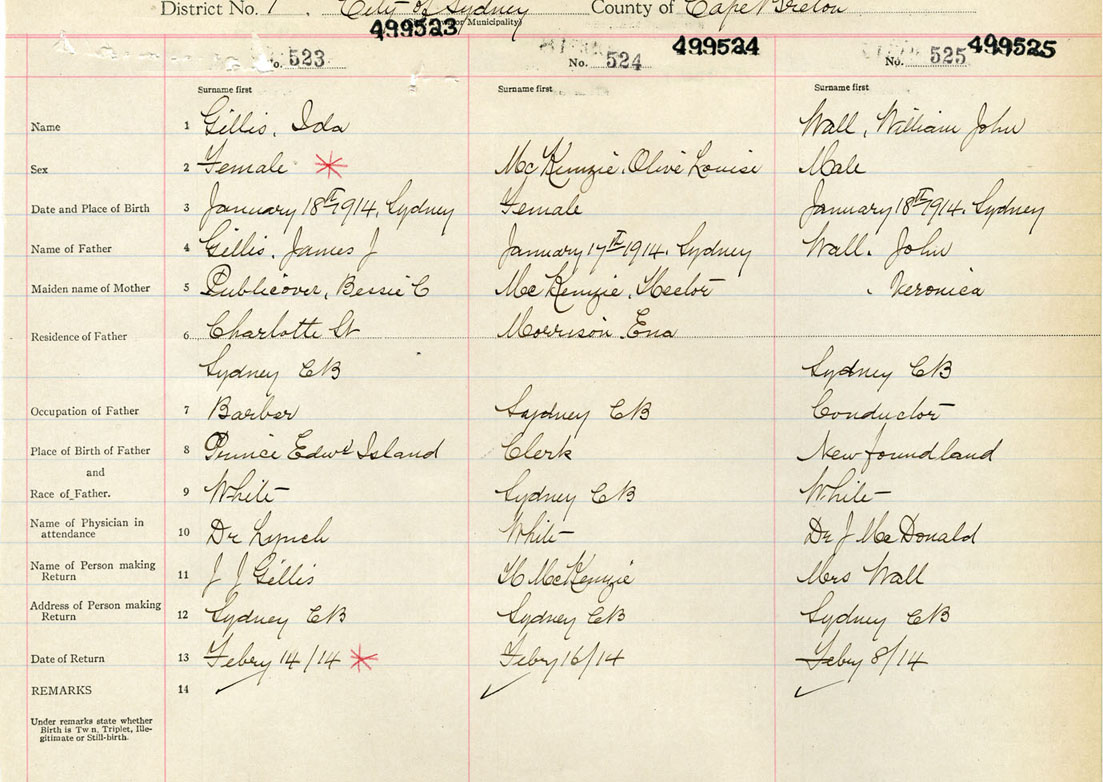 District No. 1. City of Sydney County of Cape Breton
(Town or Municipality)
499523 499524 499525
No. 523 No. 524 No. 525
Surname first Surname first Surname first
Name 1 Gillis, Ida Wall, William John
Sex 2 Female McKenzie, Olive Louise Male
Date and Place of Birth 3 January 18th 1914, Sydney Female January 18th 1914. Sydney
Name of Father 4 Gillis, James J January 17th 1914. Sydney Wall. John
Maiden name of Mother 5 Publicover, Bessie C McKenzie, Hector Veronica
Residence of Father 6 Charlotte St Morrison, Ena
Sydney CB Sydney CB
Occupation of Father 7 Barber Sydney CB Conductor
Place of Birth of Father 8 Prince Edwd Island Clerk Newfoundland
and
Race of Father. 9 White Sydney CB White
Name of Physician in attendance 10 Dr Lynch White Dr J McDonald
Name of Person making Return 11 J J Gillis H McKenzie Mrs Wall
Address of Person making Return 12 Sydney CB Sydney CB Sydney CB
Date of Return 13 Febry 14/14 Febry 16/14 Feby 8/14
REMARKS 14
Under remarks state whether
Birth is Tw n, Triplet, Ille-
gitimate or Still-birth.